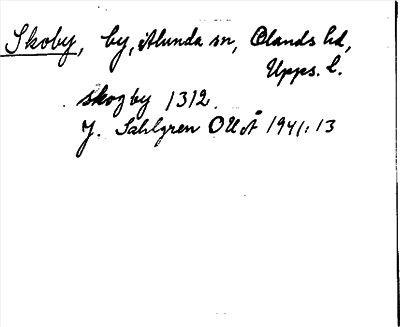 Skoby, by, Alunda sn, Olands hd,
Upps. l.
skogby 1312.
J. Sahlgren OUÅ 1941:13